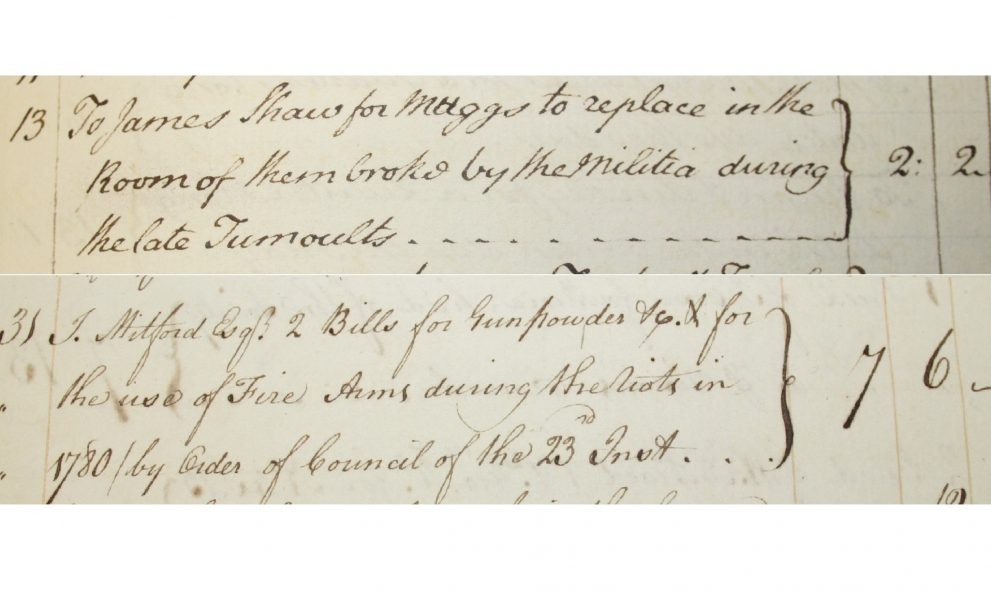 13 To James Shaw for Muggs to replace in the
Room of them broke by the Militia during 2: 2
the late Tumoults
31 J. Mitford Esqr. 2 Bills for Gunpowder &c. & for
the use of Fire Arms during the riots in 7 6 -
1780 / by Order of Council of the 23rd Inst.